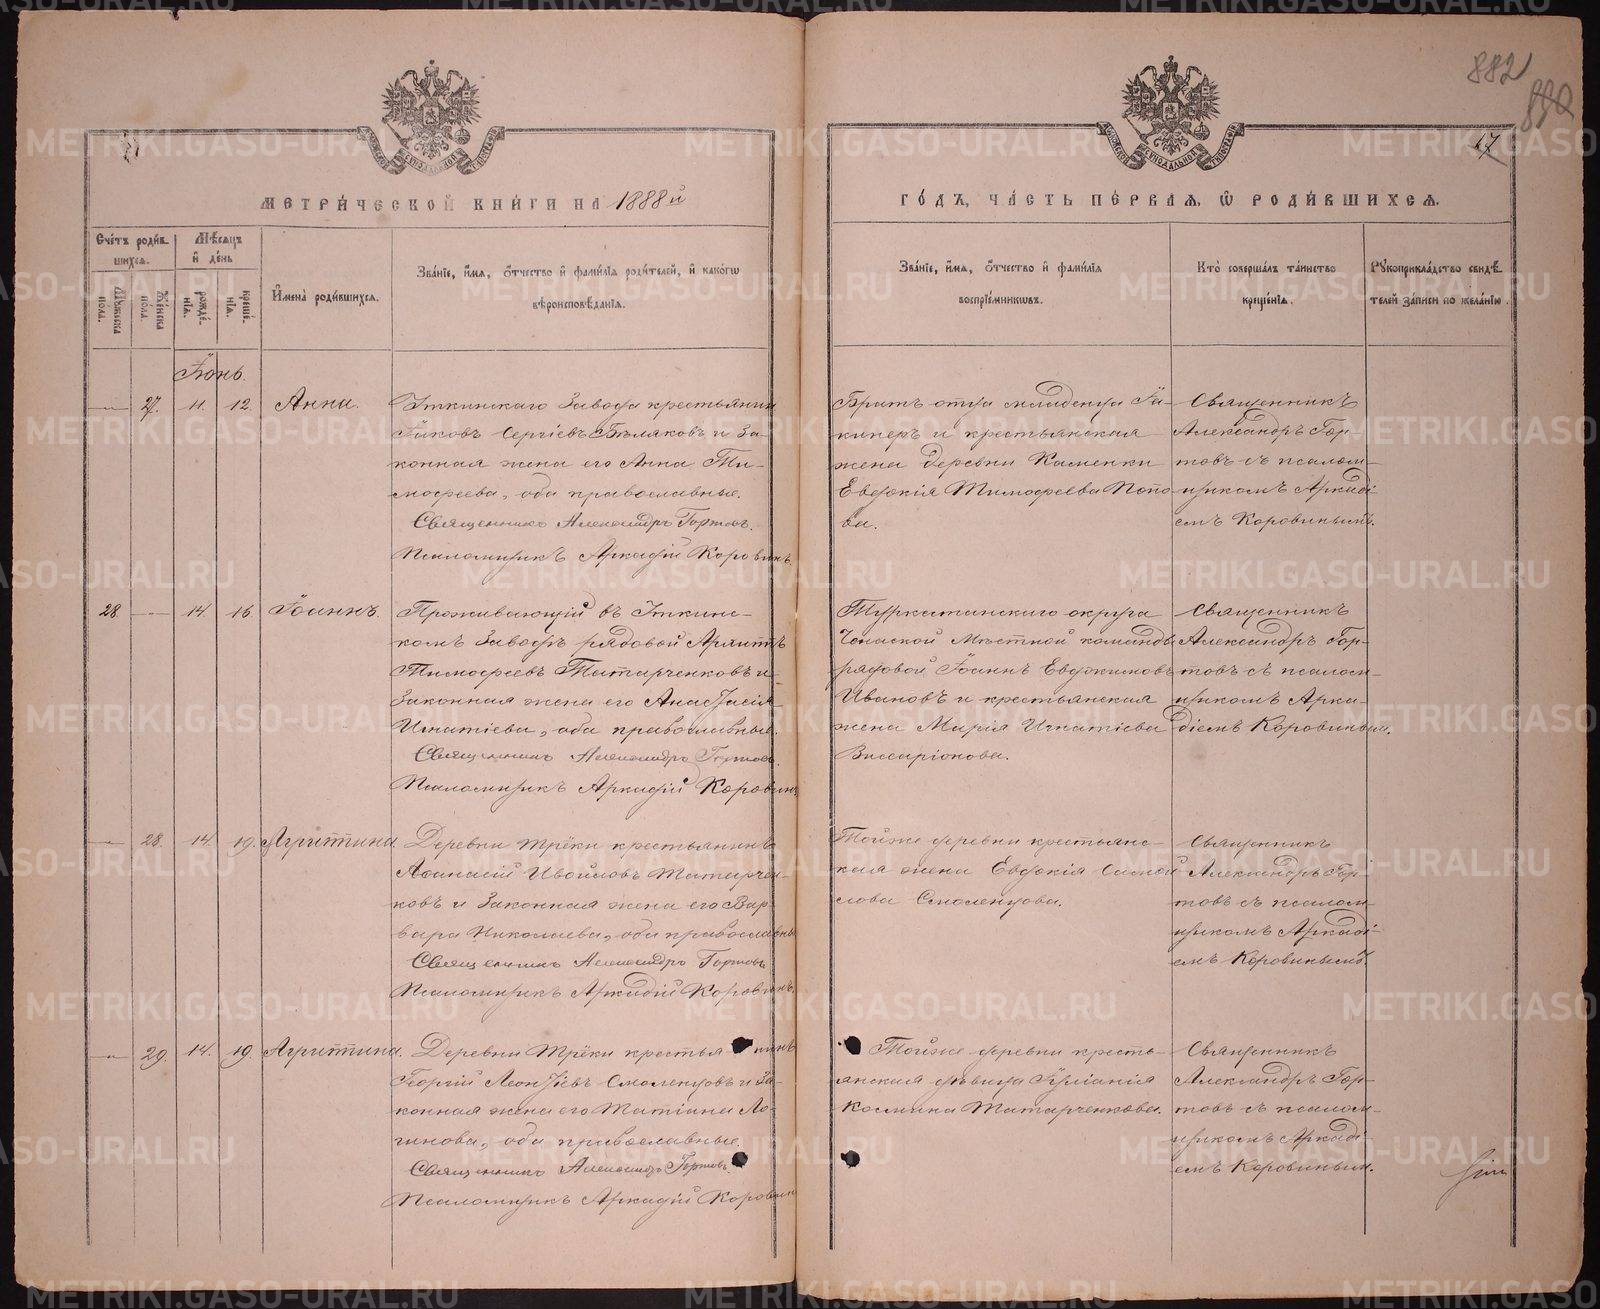 882
880
17
МЕТРИ́ЧЕСКОЙ КНИ́ГИ НА 1888й
ГО́ДЪ, ЧА́СТЬ ПЕ́РВАЯ, Ѿ РОДИ́ВШИХСЯ.
Сче́тъ роди́в
шихся.
Мѣ́сяцъ
и де́нь
Мужеска
по́ла.
Же́нска
по́ла.
рожде́
нїя.
креще́
нїя.
И́мена роди́вшихся.
Зва́нїе, и́мя, о́тчество и фами́лїя роди́телей, и како́гѡ
вѣроисповѣ́данїя.
Зва́нїе, и́мя, о́тчество и фами́лїя
воспрїе́мникѡвъ.
Кто̀ соверша́лъ та́инство
креще́нїя.
Рукоприкла́дство свидѣ́
телей за́писи по жела́нїю.
Іюнь.
27. 11. 12. Анна.
Уткинскаго Завода крестьянин
Іаковъ Сергіевъ Бѣляковъ и за-
конная жена его Анна Ти-
мофеева, оба православные.
Священникъ Александръ Гортовъ.
Псаломщикъ Аркадій Коровинъ.
Братъ отца младенца
и крестьянская
жена деревни Каменки
Евдокія Тимофеева Попо
ва.
Священникъ
Александръ Гор-
товъ съ псалом-
щикомъ Аркаді-
емъ Коровинымъ.
28. 14. 16. Іоаннъ.
Проживающій въ Уткинс-
комъ Заводѣ рядовой
Тимофеевъ Татарченковъ и
законная жена его Анастасія
Игнатіева, оба православные.
Священникъ Александръ Гортовъ.
Псаломщикъ Аркадій Коровинъ.
Туркестанскаго округа
Мѣстной команды
рядовой Іоаннъ Евдокимовъ
Ивановъ и крестьянская
жена Марія Игнатіева
Виссаріонова.
Священникъ
Александръ Гор-
товъ съ псалом-
щикомъ Арка-
діемъ Коровинымъ.
28. 14. 19. Агриппина.
Деревни Трёки крестьянинъ
Аѳанасій Татарчен-
ковъ и законная жена его Вар-
вара Николаева, оба православны
Священникъ Александръ Гортовъ
Псаломщикъ Аркадій Коровинъ.
Тойже деревни крестьянс-
кая жена Евдокія Самой
лова Смоленцова.
Священникъ
Александръ Гор-
товъ съ псалом-
щикомъ Аркаді-
емъ Коровинымъ.
29. 14. 19. Агриппина.
Деревни Трёки крестьянинъ
Георгій Леонтіевъ Смоленцовъ и за-
конная жена его Татіана Ло-
гинова, оба православные.
Священникъ Александръ Гортовъ.
Псаломщикъ Аркадій Коровин
Тойже деревни кресть-
янская дѣвица Іуліанія
Космина Татарченкова.
Священникъ
Александръ Гор-
товъ съ псалом-
щикомъ Аркаді-
емъ Коровинымъ.
METRIKI.GASO-URAL.RU